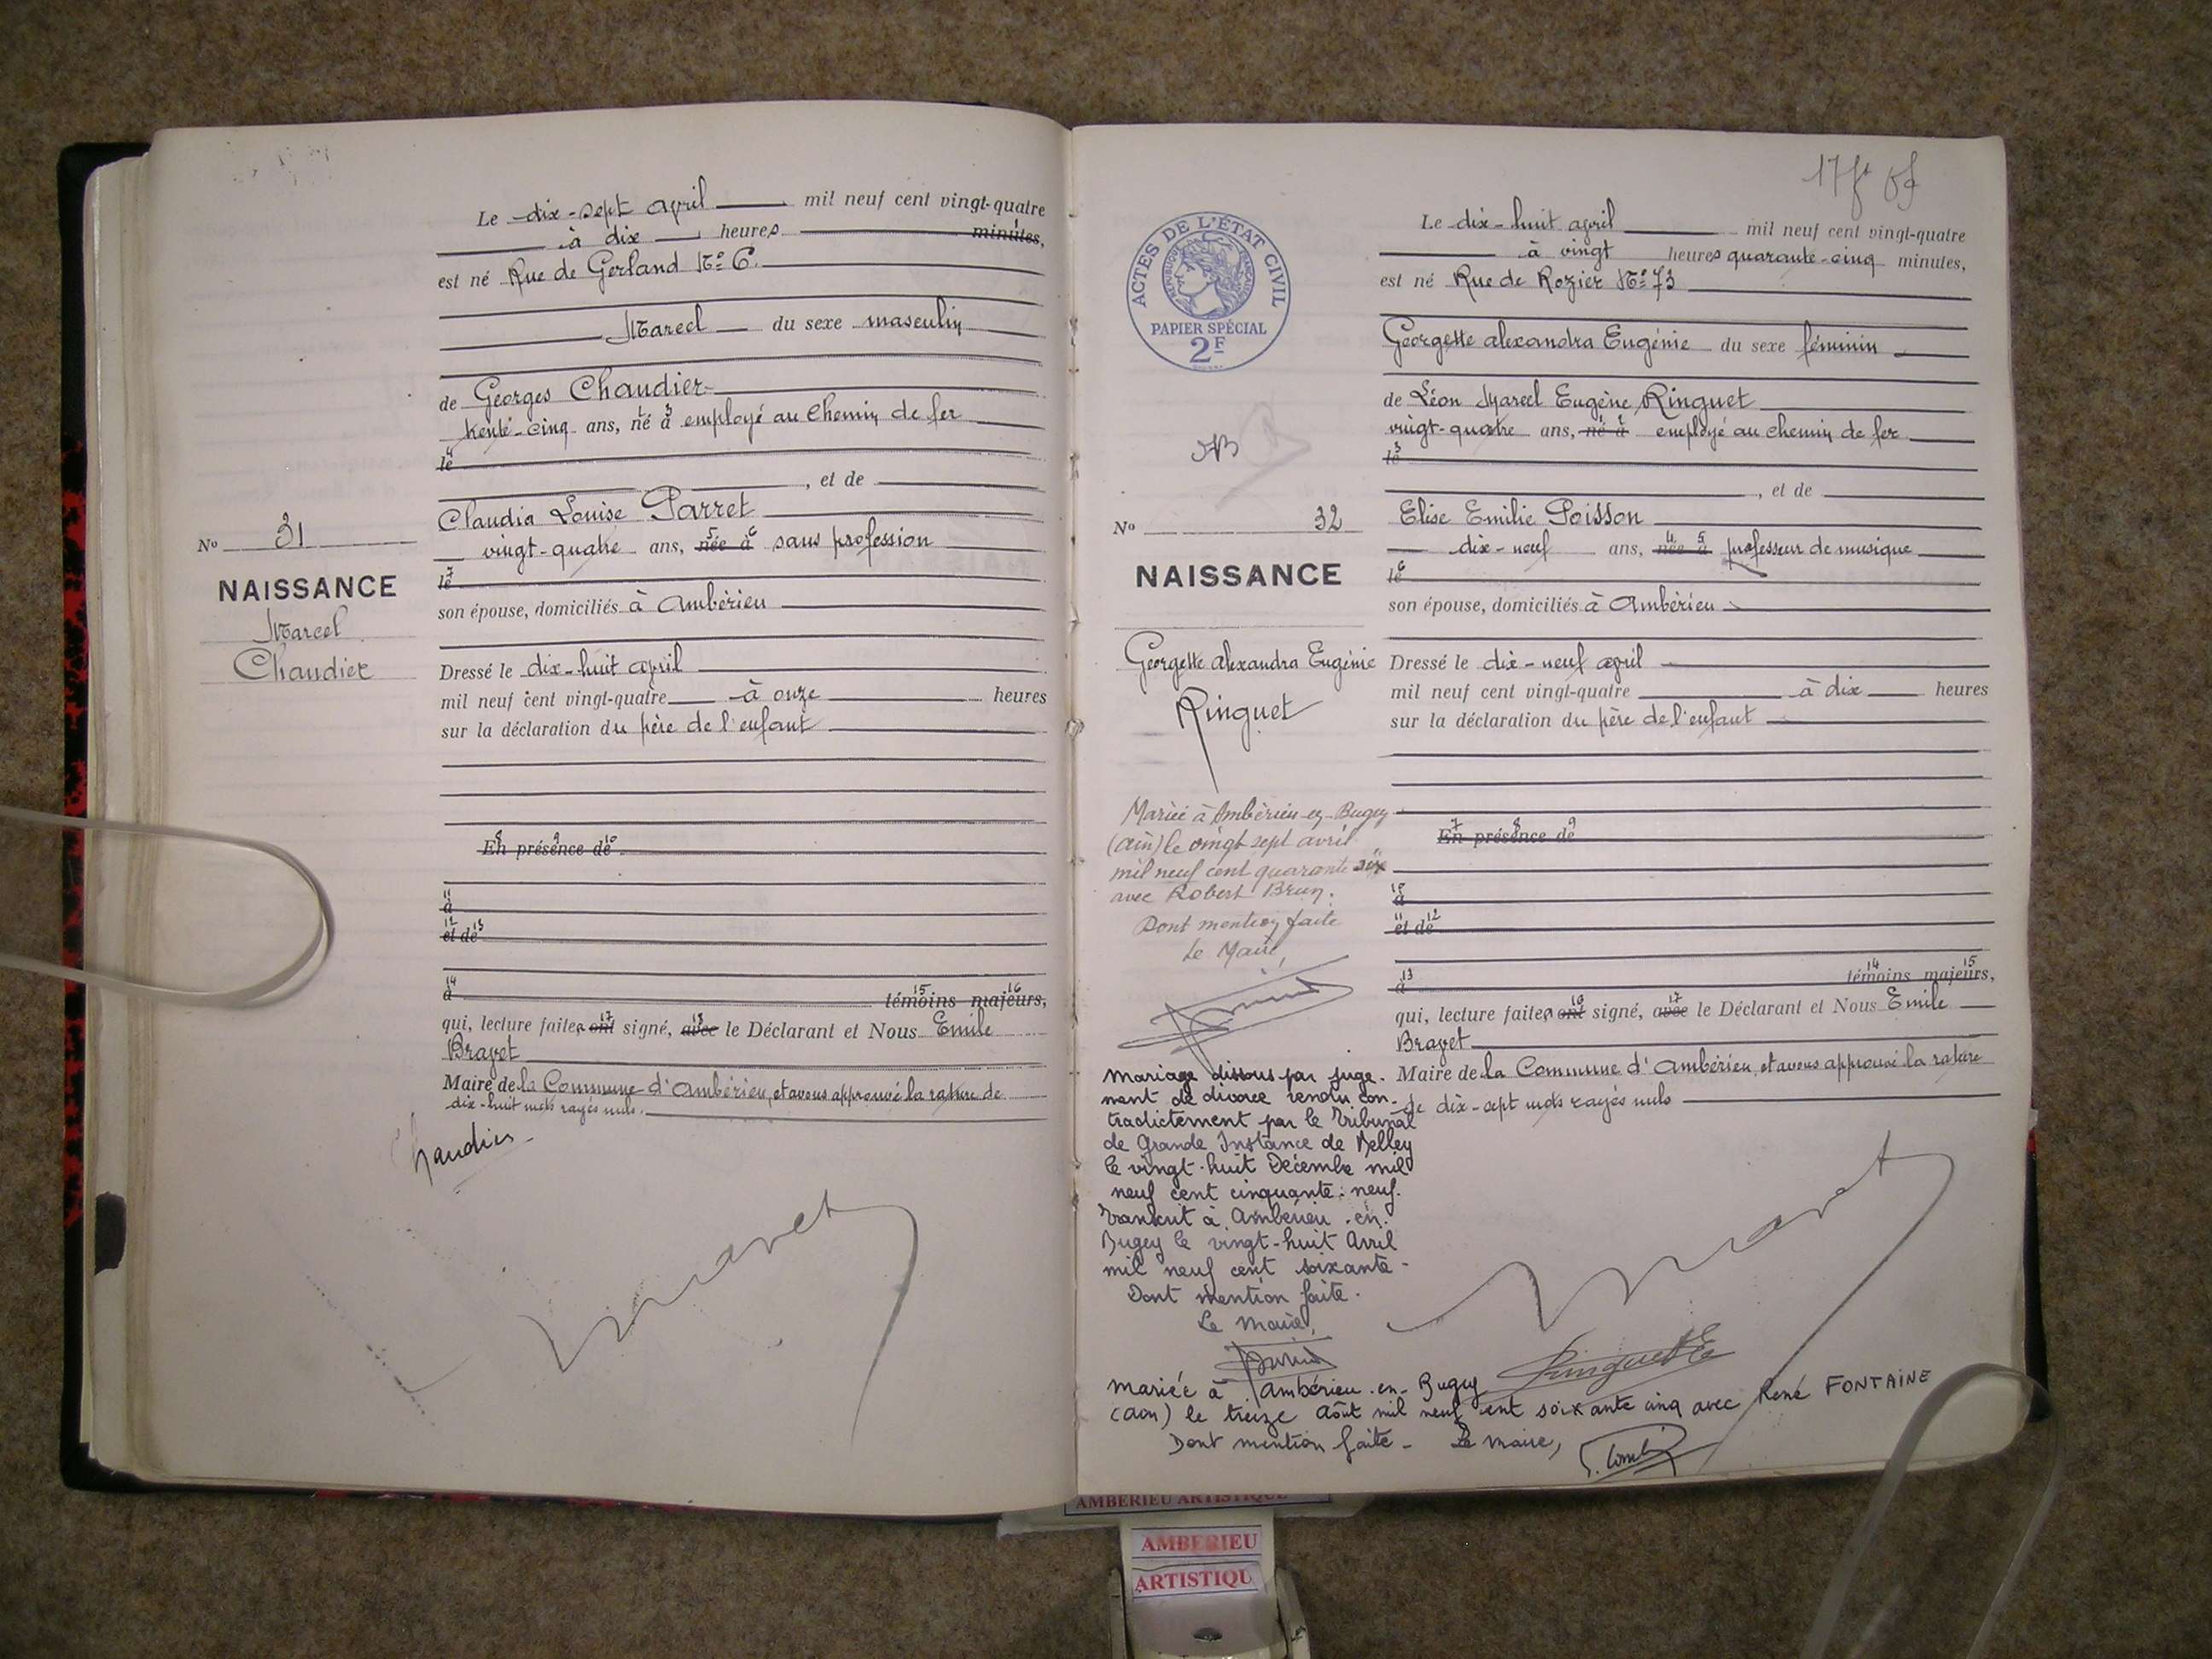 Le dix-sept april mil neuf cent vingt-quatre
à dix heures minutes,
est né Rue de Gerland N° 6.
Marcel du sexe masculin
de Georges Chaudier
trente-cinq ans, né à employé au Chemin de fer
le
, et de
Claudia Louise Parret
vingt-quatre ans, née à sans profession
le
son épouse, domiciliés à Ambérieu
Dressé le dix-huit april
mil neuf cent vingt-quatre à onze heures
sur la déclaration du père de l'enfant
En présence de
à
et de
à témoins majeurs,
qui, lecture faite, ont signé, avec le Déclarant et Nous Emile
Bravet
Maire de la Commune d'Ambérieu, et avons approuvé la rature de
dix-huit mots rayés nuls.
Chaudier
Bravet
N° 31
NAISSANCE
Marcel
Chaudier
ACTES DE L'ÉTAT CIVIL
RÉPUBLIQUE FRANÇAISE
PAPIER SPÉCIAL
2F
Le dix-huit april mil neuf cent vingt-quatre
à vingt heures quarante-cinq minutes,
est né Rue de Rozier N° 73
Georgette Alexandra Eugénie du sexe féminin
de Léon Marcel Eugène Ringuet
vingt-quatre ans, né à employé au chemin de fer
le
, et de
Elise Emilie Poisson
dix-neuf ans, née à professeur de musique
le
son épouse, domiciliés à Ambérieu
Dressé le dix-neuf april
mil neuf cent vingt-quatre à dix heures
sur la déclaration du père de l'enfant
En présence de
à
et de
à témoins majeurs,
qui, lecture faite, ont signé, avec le Déclarant et Nous Emile
Bravet
Maire de la Commune d'Ambérieu, et avons approuvé la rature
de dix-sept mots rayés nuls
Bravet
Ringuet E
N° 32
NAISSANCE
Georgette Alexandra Eugénie
Ringuet
Mariée à Ambérieu-en-Bugey
(Ain) le vingt sept avril
mil neuf cent quarante six
avec Robert Brun.
Dont mention faite
Le Maire,
Mariage dissous par juge-
ment de divorce rendu con-
tradictement par le Tribunal
de Grande Instance de Belley
le vingt-huit Décembre mil
neuf cent cinquante-neuf.
Transcrit à Ambérieu-en-
Bugey le vingt-huit Avril
mil neuf cent soixante-
Dont mention faite.
Le Maire,
Mariée à Ambérieu-en-Bugey
(Ain) le treize Août mil neuf cent soixante cinq avec René FONTAINE
Dont mention faite - Le Maire,
AMBERIEU ARTISTIQUE
AMBERIEU
ARTISTIQU